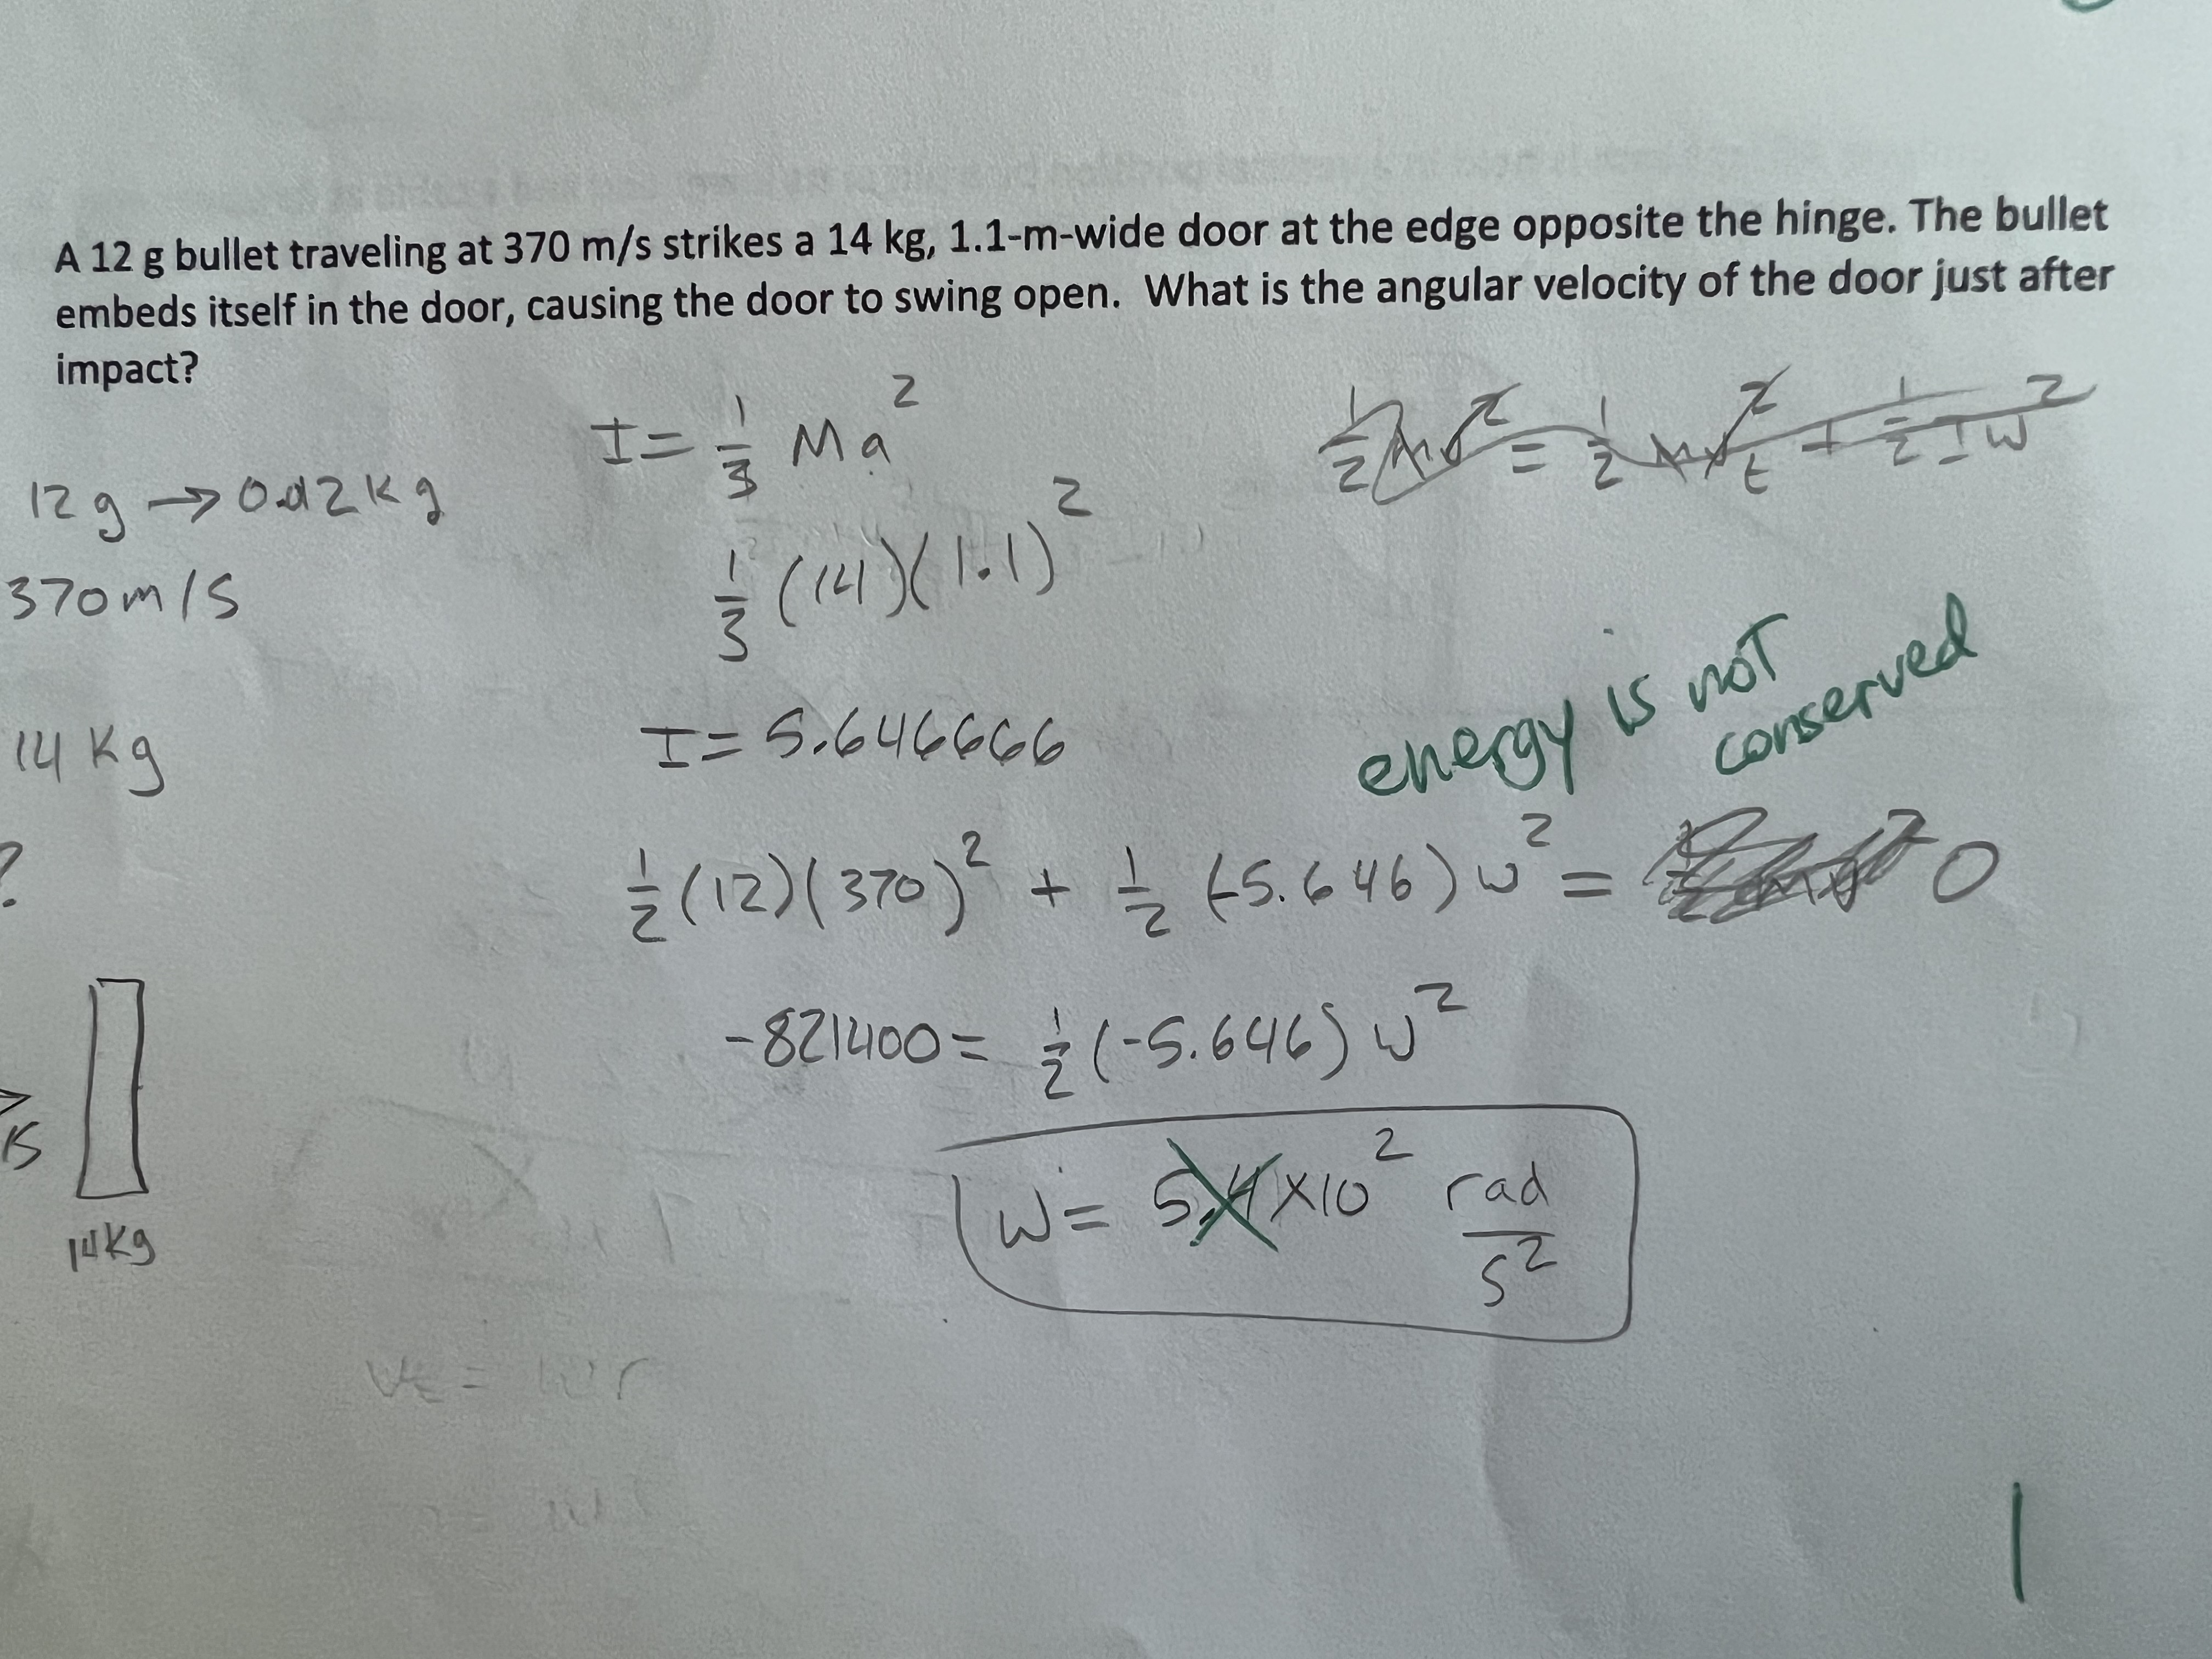 A 12 g bullet traveling at 370 m/s strikes a 14 kg, 1.1-m-wide door at the edge opposite the hinge. The bullet
embeds itself in the door, causing the door to swing open. What is the angular velocity of the door just after
impact?
I = 1/3 Ma²
1/2 mv² = 1/2 mv²t + 1/2 Iω²
12g → 0.012kg
1/3 (14)(1.1)²
370m/s
I = 5.646666
14 kg
energy is not
conserved
?
1/2(12)(370)² + 1/2 (-5.646)ω² = 0
-821400 = 1/2 (-5.646) ω²
ω = 5.4 ×10² rad/s²
14kg
Vt = ωr
1